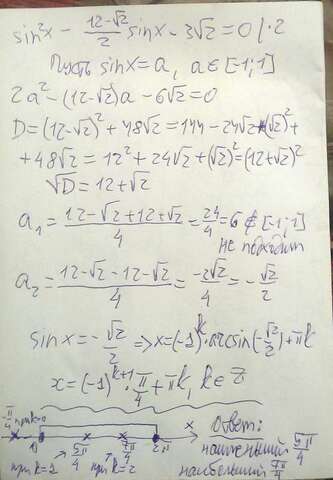 sin²x - (12-√2)/2 sinx - 3√2 = 0 | · 2
Пусть sinx = a, a ∈ [-1;1]
2a² - (12-√2)a - 6√2 = 0
D = (12-√2)² + 48√2 = 144 - 24√2 + (√2)² +
+ 48√2 = 12² + 24√2 + (√2)² = (12+√2)²
√D = 12+√2
a₁ = (12-√2+12+√2)/4 = 24/4 = 6 ∉ [-1;1]
не подходит
a₂ = (12-√2-12-√2)/4 = -2√2/4 = -√2/2
sinx = -√2/2 => x = (-1)^k · arcsin(-√2/2) + πk
x = (-1)^(k+1) · π/4 + πk, k ∈ Z
-π/4 при k=0
0 5π/4 7π/4 2π x
при k=1 при k=2
Ответ:
наименьший 5π/4
наибольший 7π/4